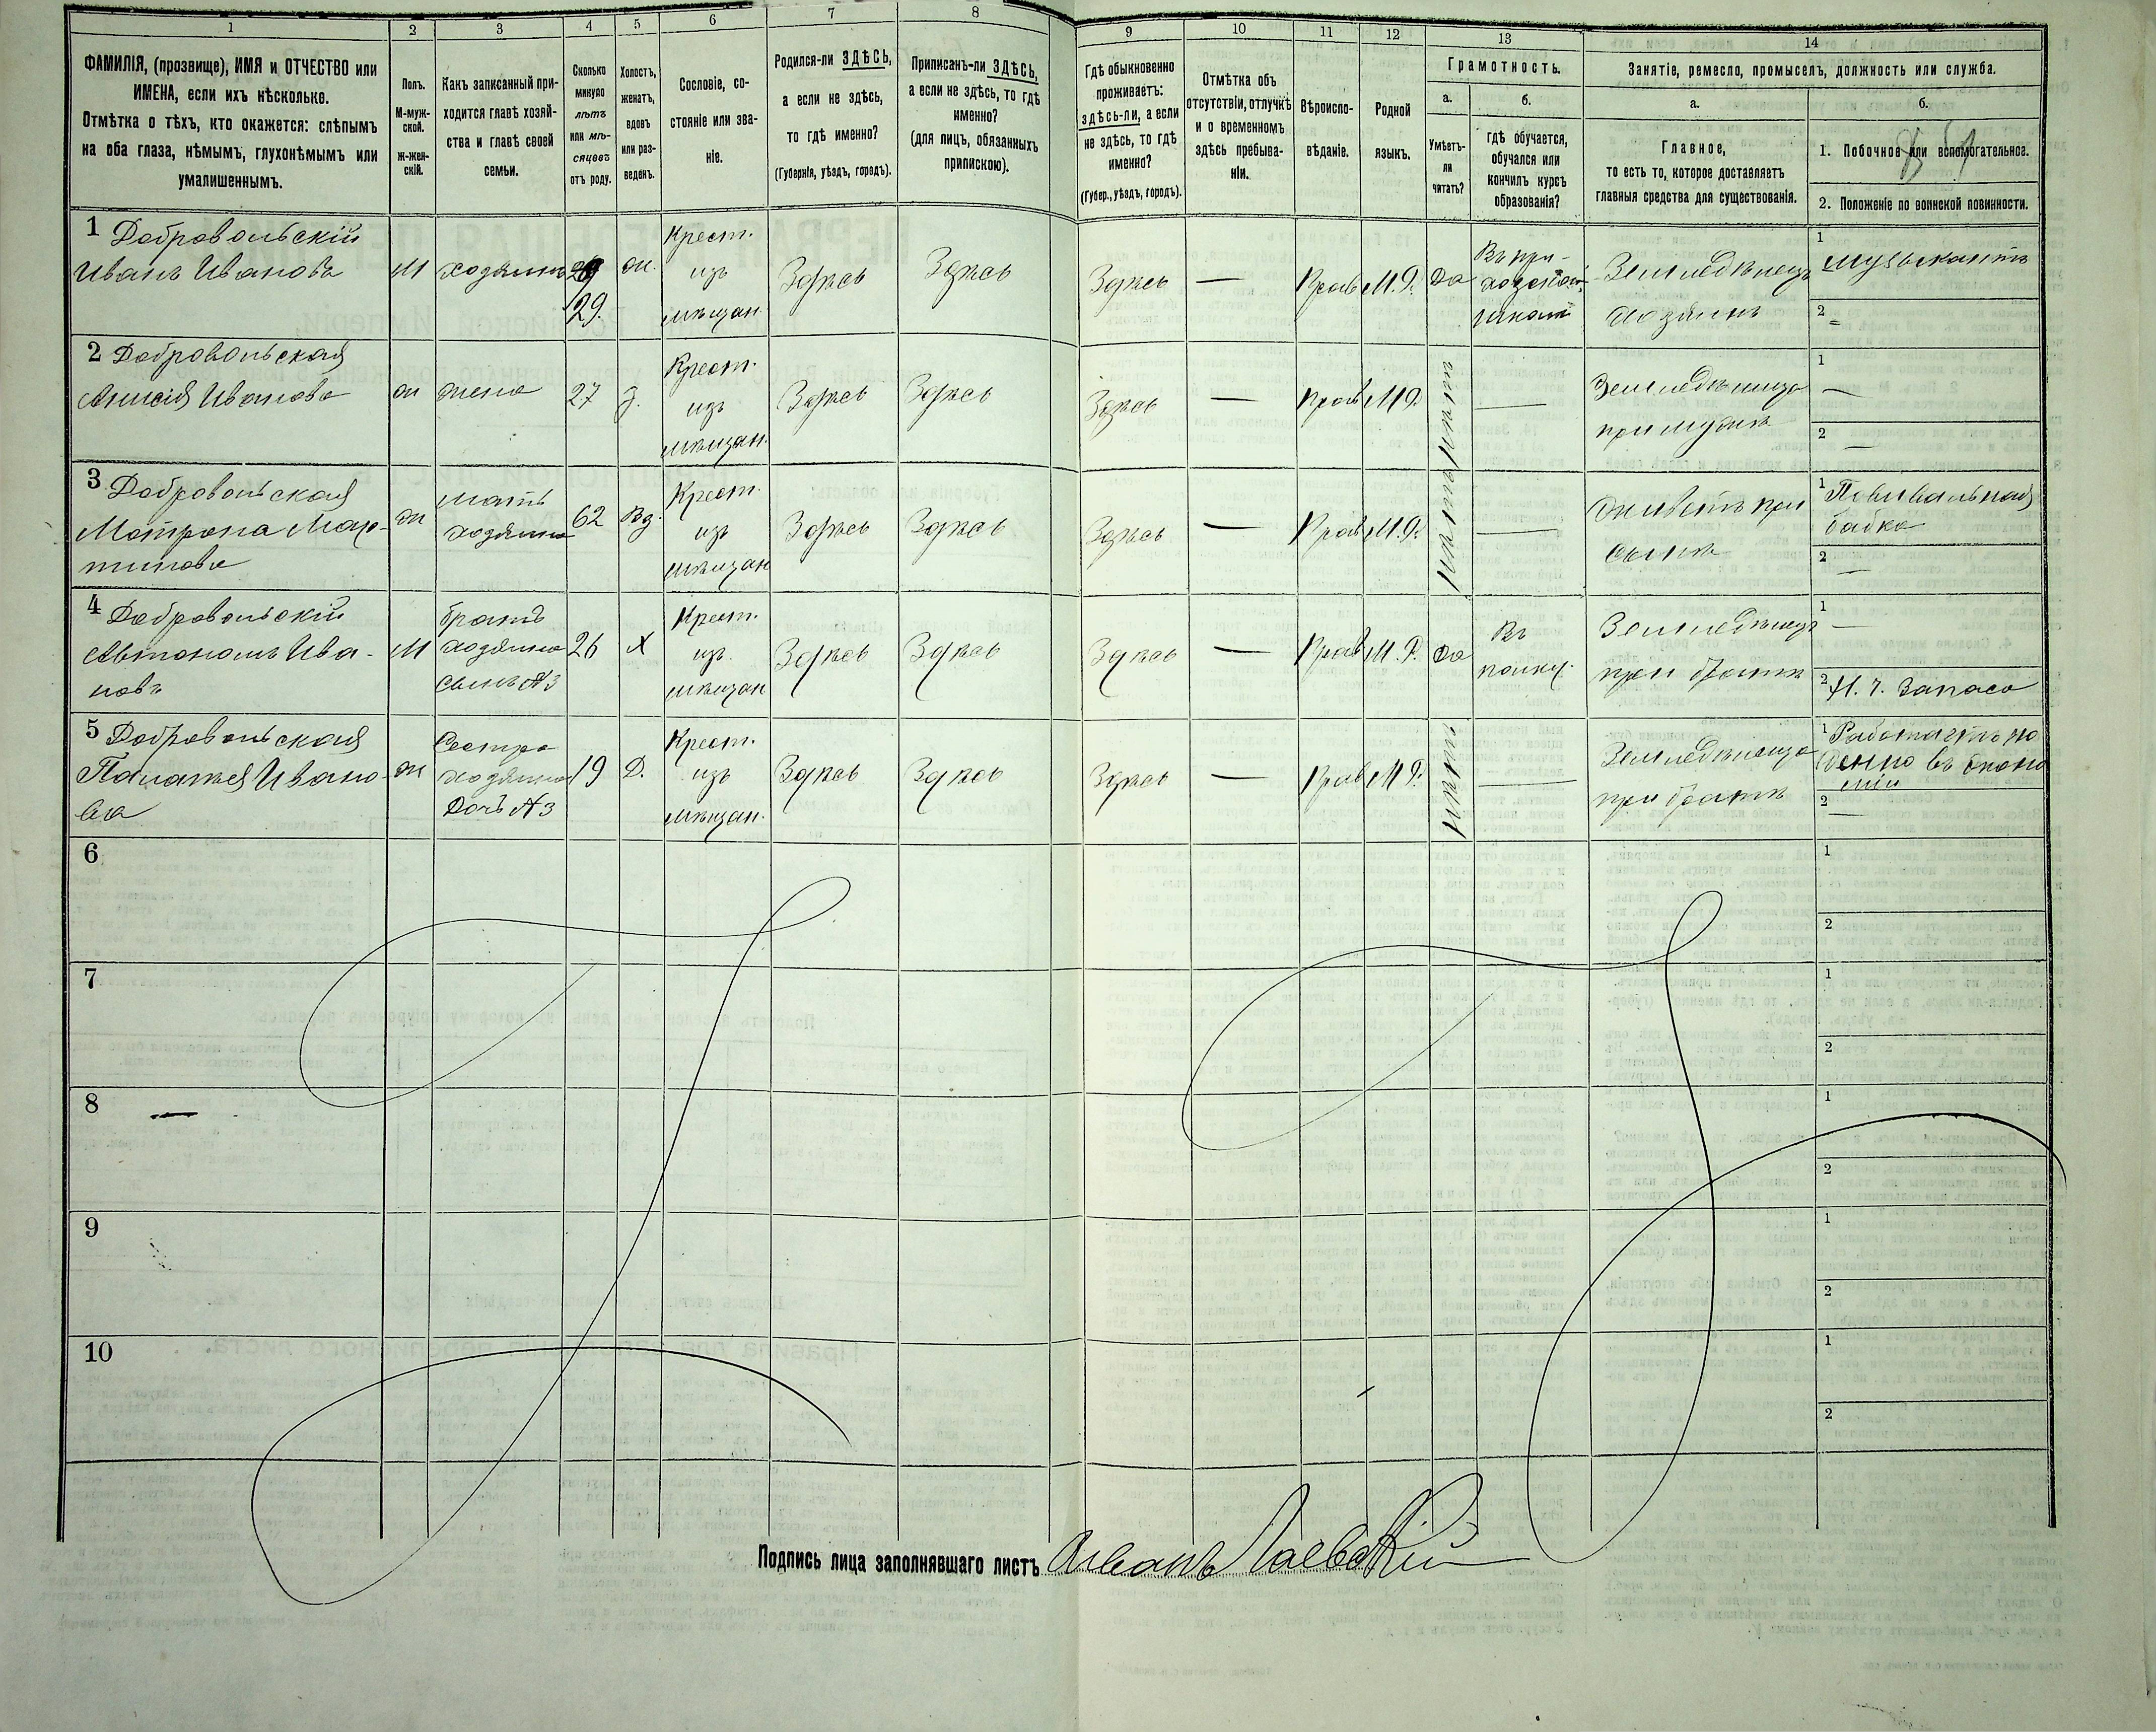 1 2 3 4 5 6 7 8 9 10 11 12 13 14
ФАМИЛІЯ, (прозвище), ИМЯ и ОТЧЕСТВО или
ИМЕНА, если ихъ нѣсколько.
Отмѣтка о тѣхъ, кто окажется: слѣпымъ
на оба глаза, нѣмымъ, глухонѣмымъ или
умалишеннымъ.
Полъ.
М-муж-
ской.
ж-жен-
скій.
Какъ записанный при-
ходится главѣ хозяй-
ства и главѣ своей
семьи.
Сколько
минуло
лѣтъ
или мѣ-
сяцевъ
отъ роду.
Холостъ,
женатъ,
вдовъ
или раз-
веденъ.
Сословіе, со-
стояніе или зва-
ніе.
Родился-ли ЗДѢСЬ,
а если не здѣсь,
то гдѣ именно?
(Губернія, уѣздъ, городъ).
Приписанъ-ли ЗДѢСЬ,
а если не здѣсь, то гдѣ
именно?
(для лицъ, обязанныхъ
припискою).
Гдѣ обыкновенно
проживаетъ:
здѣсь-ли, а если
не здѣсь, то гдѣ
именно?
(Губер., уѣздъ, городъ).
Отмѣтка объ
отсутствіи, отлучкѣ
и о временномъ
здѣсь пребыва-
ніи.
Вѣроиспо-
вѣданіе.
Родной
языкъ.
Грамотность.
а.
Умѣетъ-
ли
читать?
б.
гдѣ обучается,
обучался или
кончилъ курсъ
образованія?
Занятіе, ремесло, промыселъ, должность или служба.
а.
Главное,
то есть то, которое доставляетъ
главныя средства для существованія.
б.
1. Побочное или вспомогательное.
2. Положеніе по воинской повинности.
1 Добровольскій
Иванъ Ивановъ
М
хозяинъ
29.
ж.
Крест.
изъ
мѣщан.
Здѣсь
Здѣсь
Здѣсь
—
Прав
М.Р.
Да
Въ при-
ходской
школѣ
Землѣделецъ
хозяинъ
1 музыкантъ
2 =
2 Добровольская
Анисія Иванова
ж
жена
27
З.
Крест.
изъ
мѣщан.
Здѣсь
Здѣсь
Здѣсь
—
Прав
М.Р.
нѣтъ
—
Земледѣлица
при мужѣ
1 —
2 —
3 Добровольская
Матрона Мар-
тинова
ж
мать
хозяина
62
Вд.
Крест.
изъ
мѣщан
Здѣсь
Здѣсь
Здѣсь
—
Прав
М.Р.
нѣтъ
—
Живетъ при
сынѣ
1 Повивальная
бабка
2 —
4 Добровольскій
Автономъ Ива-
новъ
М
братъ
хозяина
сынъ №3
26
Х
Крест.
изъ
мѣщан
Здѣсь
Здѣсь
Здѣсь
—
Прав
М.Р.
Да
Въ
полку.
Земледѣлецъ
при братѣ
1 —
2 Н. ч. запаса
5 Добровольская
Палажея Ивано-
ва
ж
Сестра
хозяина
Дочь №3
19
Д.
Крест.
изъ
мѣщан.
Здѣсь
Здѣсь
Здѣсь
—
Прав
М.Р.
нѣтъ
—
Земледѣлица
при братѣ
1 Работаетъ по
денно въ эконо
міи
2 —
6
1
2
7
1
2
8
1
2
9
1
2
10
1
2
Подпись лица заполнявшаго листъ Иванъ